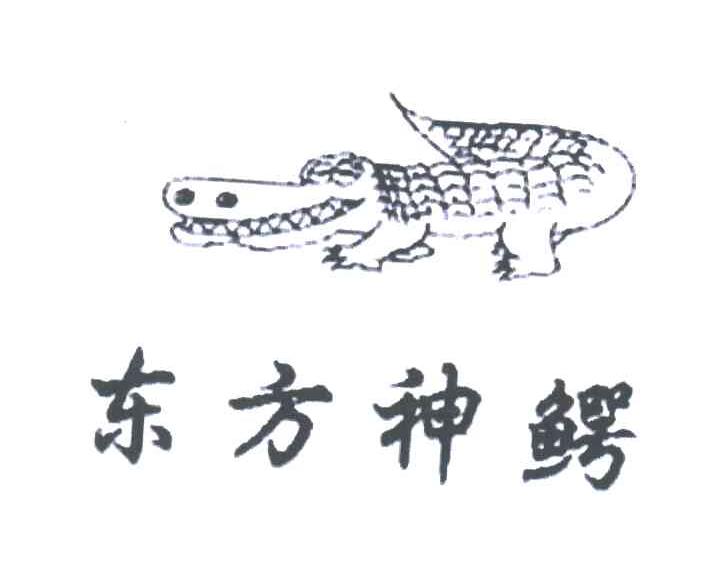 东方神鳄